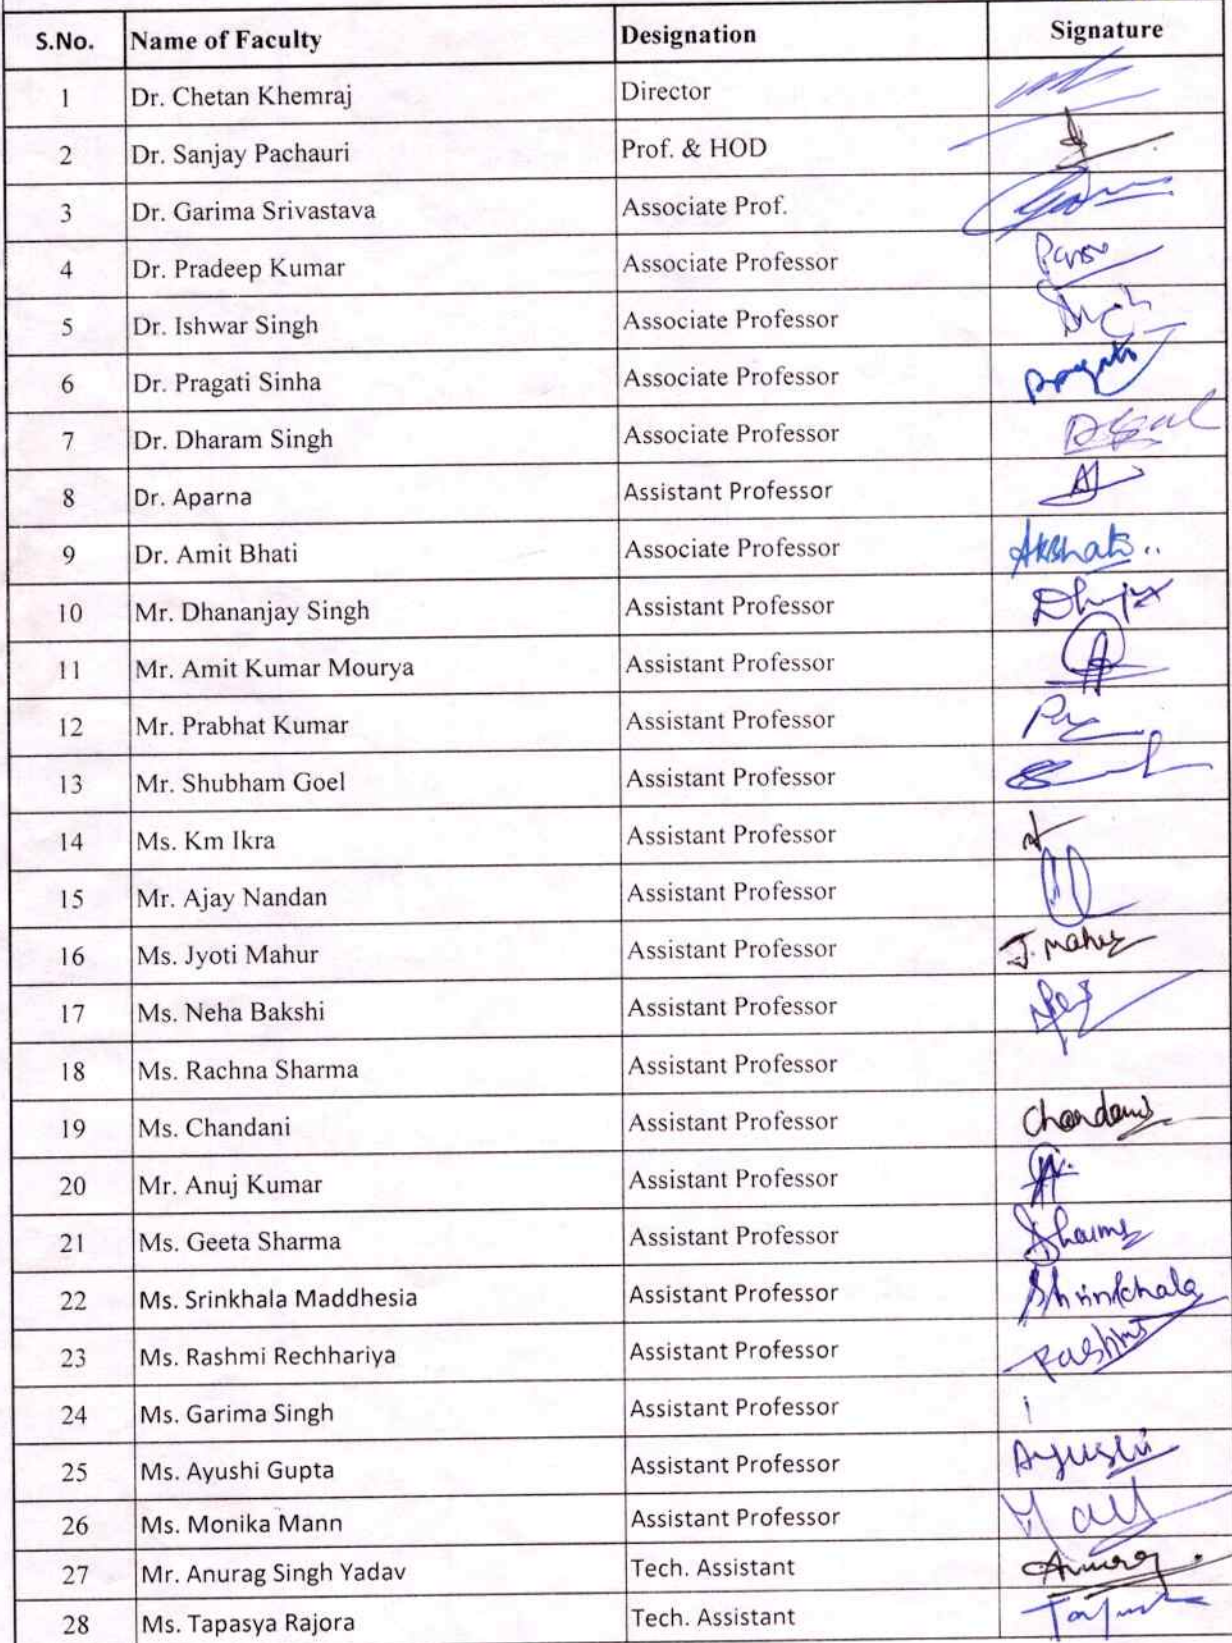 S.No. Name of Faculty Designation Signature
1 Dr. Chetan Khemraj Director
2 Dr. Sanjay Pachauri Prof. & HOD
3 Dr. Garima Srivastava Associate Prof.
4 Dr. Pradeep Kumar Associate Professor
5 Dr. Ishwar Singh Associate Professor
6 Dr. Pragati Sinha Associate Professor Pragati
7 Dr. Dharam Singh Associate Professor
8 Dr. Aparna Assistant Professor
9 Dr. Amit Bhati Associate Professor
10 Mr. Dhananjay Singh Assistant Professor
11 Mr. Amit Kumar Mourya Assistant Professor
12 Mr. Prabhat Kumar Assistant Professor
13 Mr. Shubham Goel Assistant Professor
14 Ms. Km Ikra Assistant Professor
15 Mr. Ajay Nandan Assistant Professor
16 Ms. Jyoti Mahur Assistant Professor J. Mahur
17 Ms. Neha Bakshi Assistant Professor
18 Ms. Rachna Sharma Assistant Professor
19 Ms. Chandani Assistant Professor Chandani
20 Mr. Anuj Kumar Assistant Professor
21 Ms. Geeta Sharma Assistant Professor Sharma
22 Ms. Srinkhala Maddhesia Assistant Professor Shrinkhala
23 Ms. Rashmi Rechhariya Assistant Professor Rashmi
24 Ms. Garima Singh Assistant Professor
25 Ms. Ayushi Gupta Assistant Professor Ayushi
26 Ms. Monika Mann Assistant Professor
27 Mr. Anurag Singh Yadav Tech. Assistant Anurag
28 Ms. Tapasya Rajora Tech. Assistant